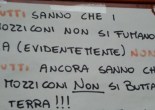 TUTTI SANNO CHE I
MOZZICONI NON SI FUMANO
MA (EVIDENTEMENTE) NON
TUTTI ANCORA SANNO CHE
MOZZICONI NON SI BUTTA
TERRA!!!